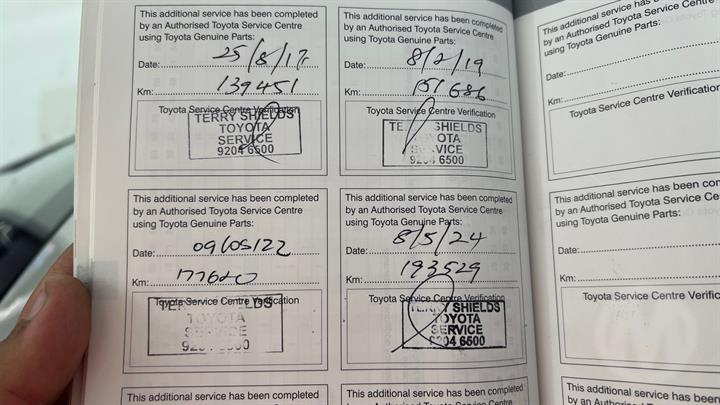 This additional service has been completed
by an Authorised Toyota Service Centre
using Toyota Genuine Parts:
Date: 25/8/17
Km: 139451
Toyota Service Centre Verification
TERRY SHIELDS
TOYOTA
SERVICE
9204 6500
This additional service has been completed
by an Authorised Toyota Service Centre
using Toyota Genuine Parts:
Date: 8/2/19
Km: 151686
Toyota Service Centre Verification
TE SHIELDS
OTA
VICE
6500
This additional service has
by an Authorised Toyota
using Toyota Genuine Parts:
Date:
Km:
Toyota Service Centre Verification
This additional service has been completed
by an Authorised Toyota Service Centre
using Toyota Genuine Parts:
Date: 09/05/22
Km: 177620
Toyota Service Centre Verification
LDS
TOYOTA
SERVICE
This additional service has been completed
by an Authorised Toyota Service Centre
using Toyota Genuine Parts:
Date: 8/5/24
Km: 193529
Toyota Service Centre Verification
TERRY SHIELDS
TOYOTA
SERVICE
9204 6500
This additional service has been com
by an Authorised Toyota Service Ce
using Toyota Genuine Parts:
Date:
Km:
Toyota Service Centre Verifi
This additional service has been completed
by an Authorised Toyota Service Centre
This additional service has been completed
by an Authorised Toyota Service Centre
This additional service has been